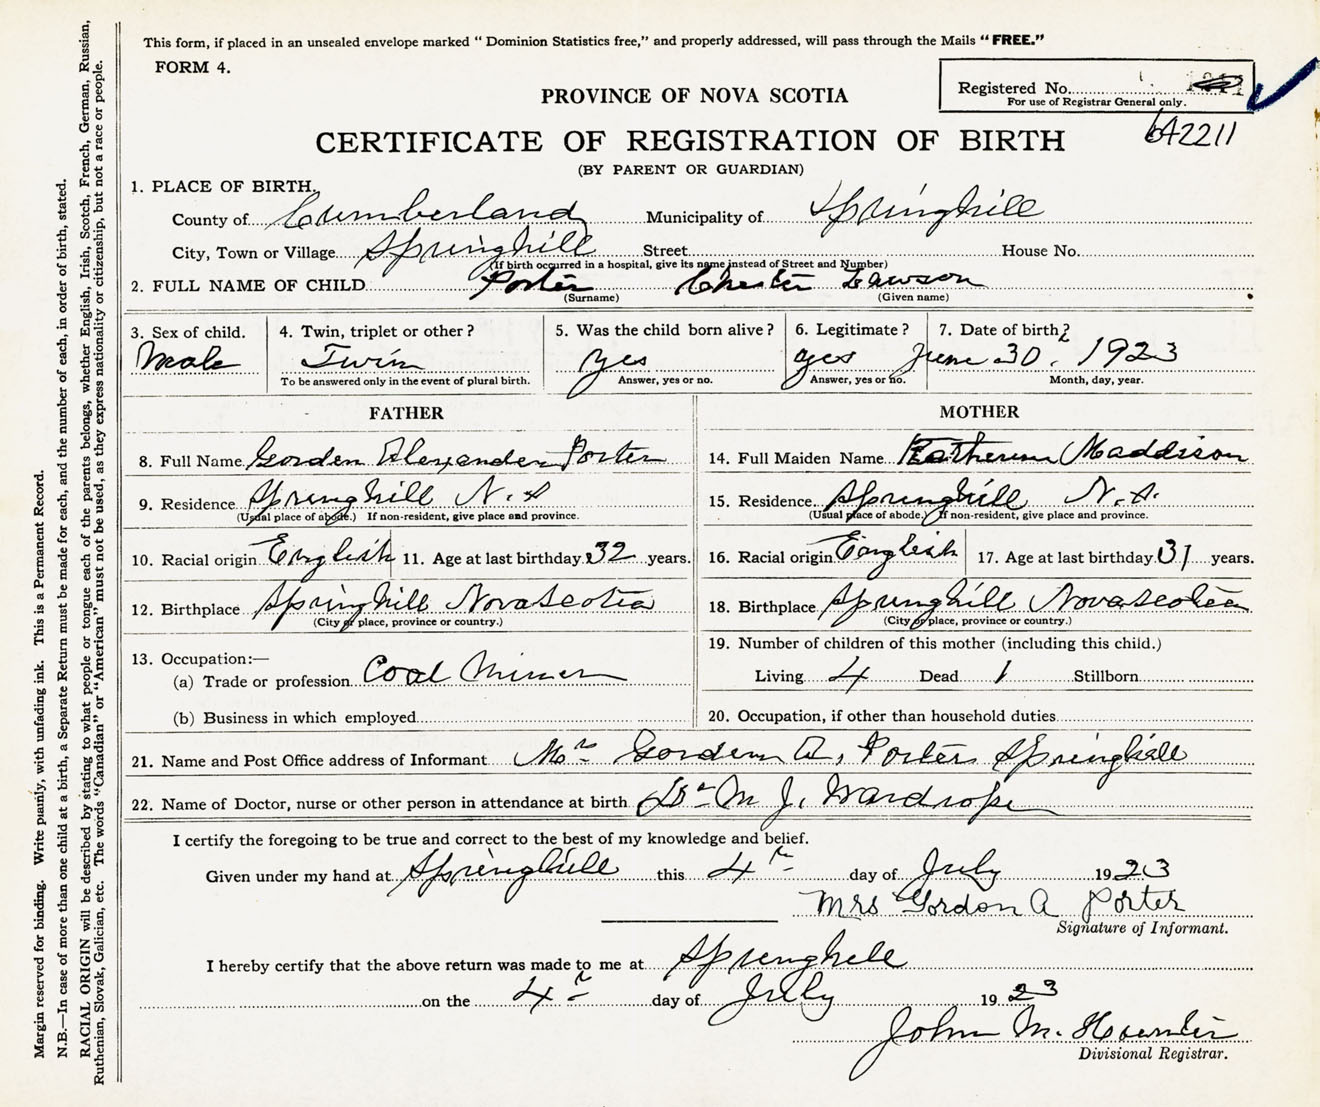 This form, if placed in an unsealed envelope marked “ Dominion Statistics free,” and properly addressed, will pass through the Mails “ FREE.”
FORM 4.
Registered No.
For use of Registrar General only.
PROVINCE OF NOVA SCOTIA
642211
CERTIFICATE OF REGISTRATION OF BIRTH
(BY PARENT OR GUARDIAN)
1. PLACE OF BIRTH.
County of Cumberland Municipality of Springhill
City, Town or Village Springhill Street House No.
(If birth occurred in a hospital, give its name instead of Street and Number)
2. FULL NAME OF CHILD Porter Chester Lawson
(Surname) (Given name)
3. Sex of child. 4. Twin, triplet or other ? 5. Was the child born alive ? 6. Legitimate ? 7. Date of birth 2
Male Twin yes yes June 30. 1923
To be answered only in the event of plural birth. Answer, yes or no. Answer, yes or no. Month, day, year.
FATHER MOTHER
8. Full Name Gorden Alexander Porter 14. Full Maiden Name Katherine Maddison
9. Residence Springhill N.S 15. Residence Springhill N.S.
(Usual place of abode.) If non-resident, give place and province. (Usual place of abode.) If non-resident, give place and province.
10. Racial origin English 11. Age at last birthday 32 years. 16. Racial origin English 17. Age at last birthday 31 years.
12. Birthplace Springhill Nova Scotia 18. Birthplace Springhill Nova Scotia
(City or place, province or country.) (City or place, province or country.)
13. Occupation:— 19. Number of children of this mother (including this child.)
(a) Trade or profession Coal Miner Living 4 Dead 1 Stillborn
(b) Business in which employed 20. Occupation, if other than household duties
21. Name and Post Office address of Informant Mrs Gorden A, Porter Springhill
22. Name of Doctor, nurse or other person in attendance at birth Dr M J. Wardrope
I certify the foregoing to be true and correct to the best of my knowledge and belief.
Given under my hand at Springhill this 4th day of July 1923
Mrs Gordon A Porter
Signature of Informant.
I hereby certify that the above return was made to me at Springhill
on the 4th day of July 1923
John M.
Divisional Registrar.
Margin reserved for binding. Write plainly, with unfading ink. This is a Permanent Record.
N.B.—In case of more than one child at a birth, a Separate Return must be made for each, and the number of each, in order of birth, stated.
RACIAL ORIGIN will be described by stating to what people or tongue each of the parents belongs, whether English, Irish, Scotch, French, German, Russian,
Ruthenian, Slovak, Galician, etc. The words “Canadian” or “American” must not be used, as they express nationality or citizenship, but not a race or people.